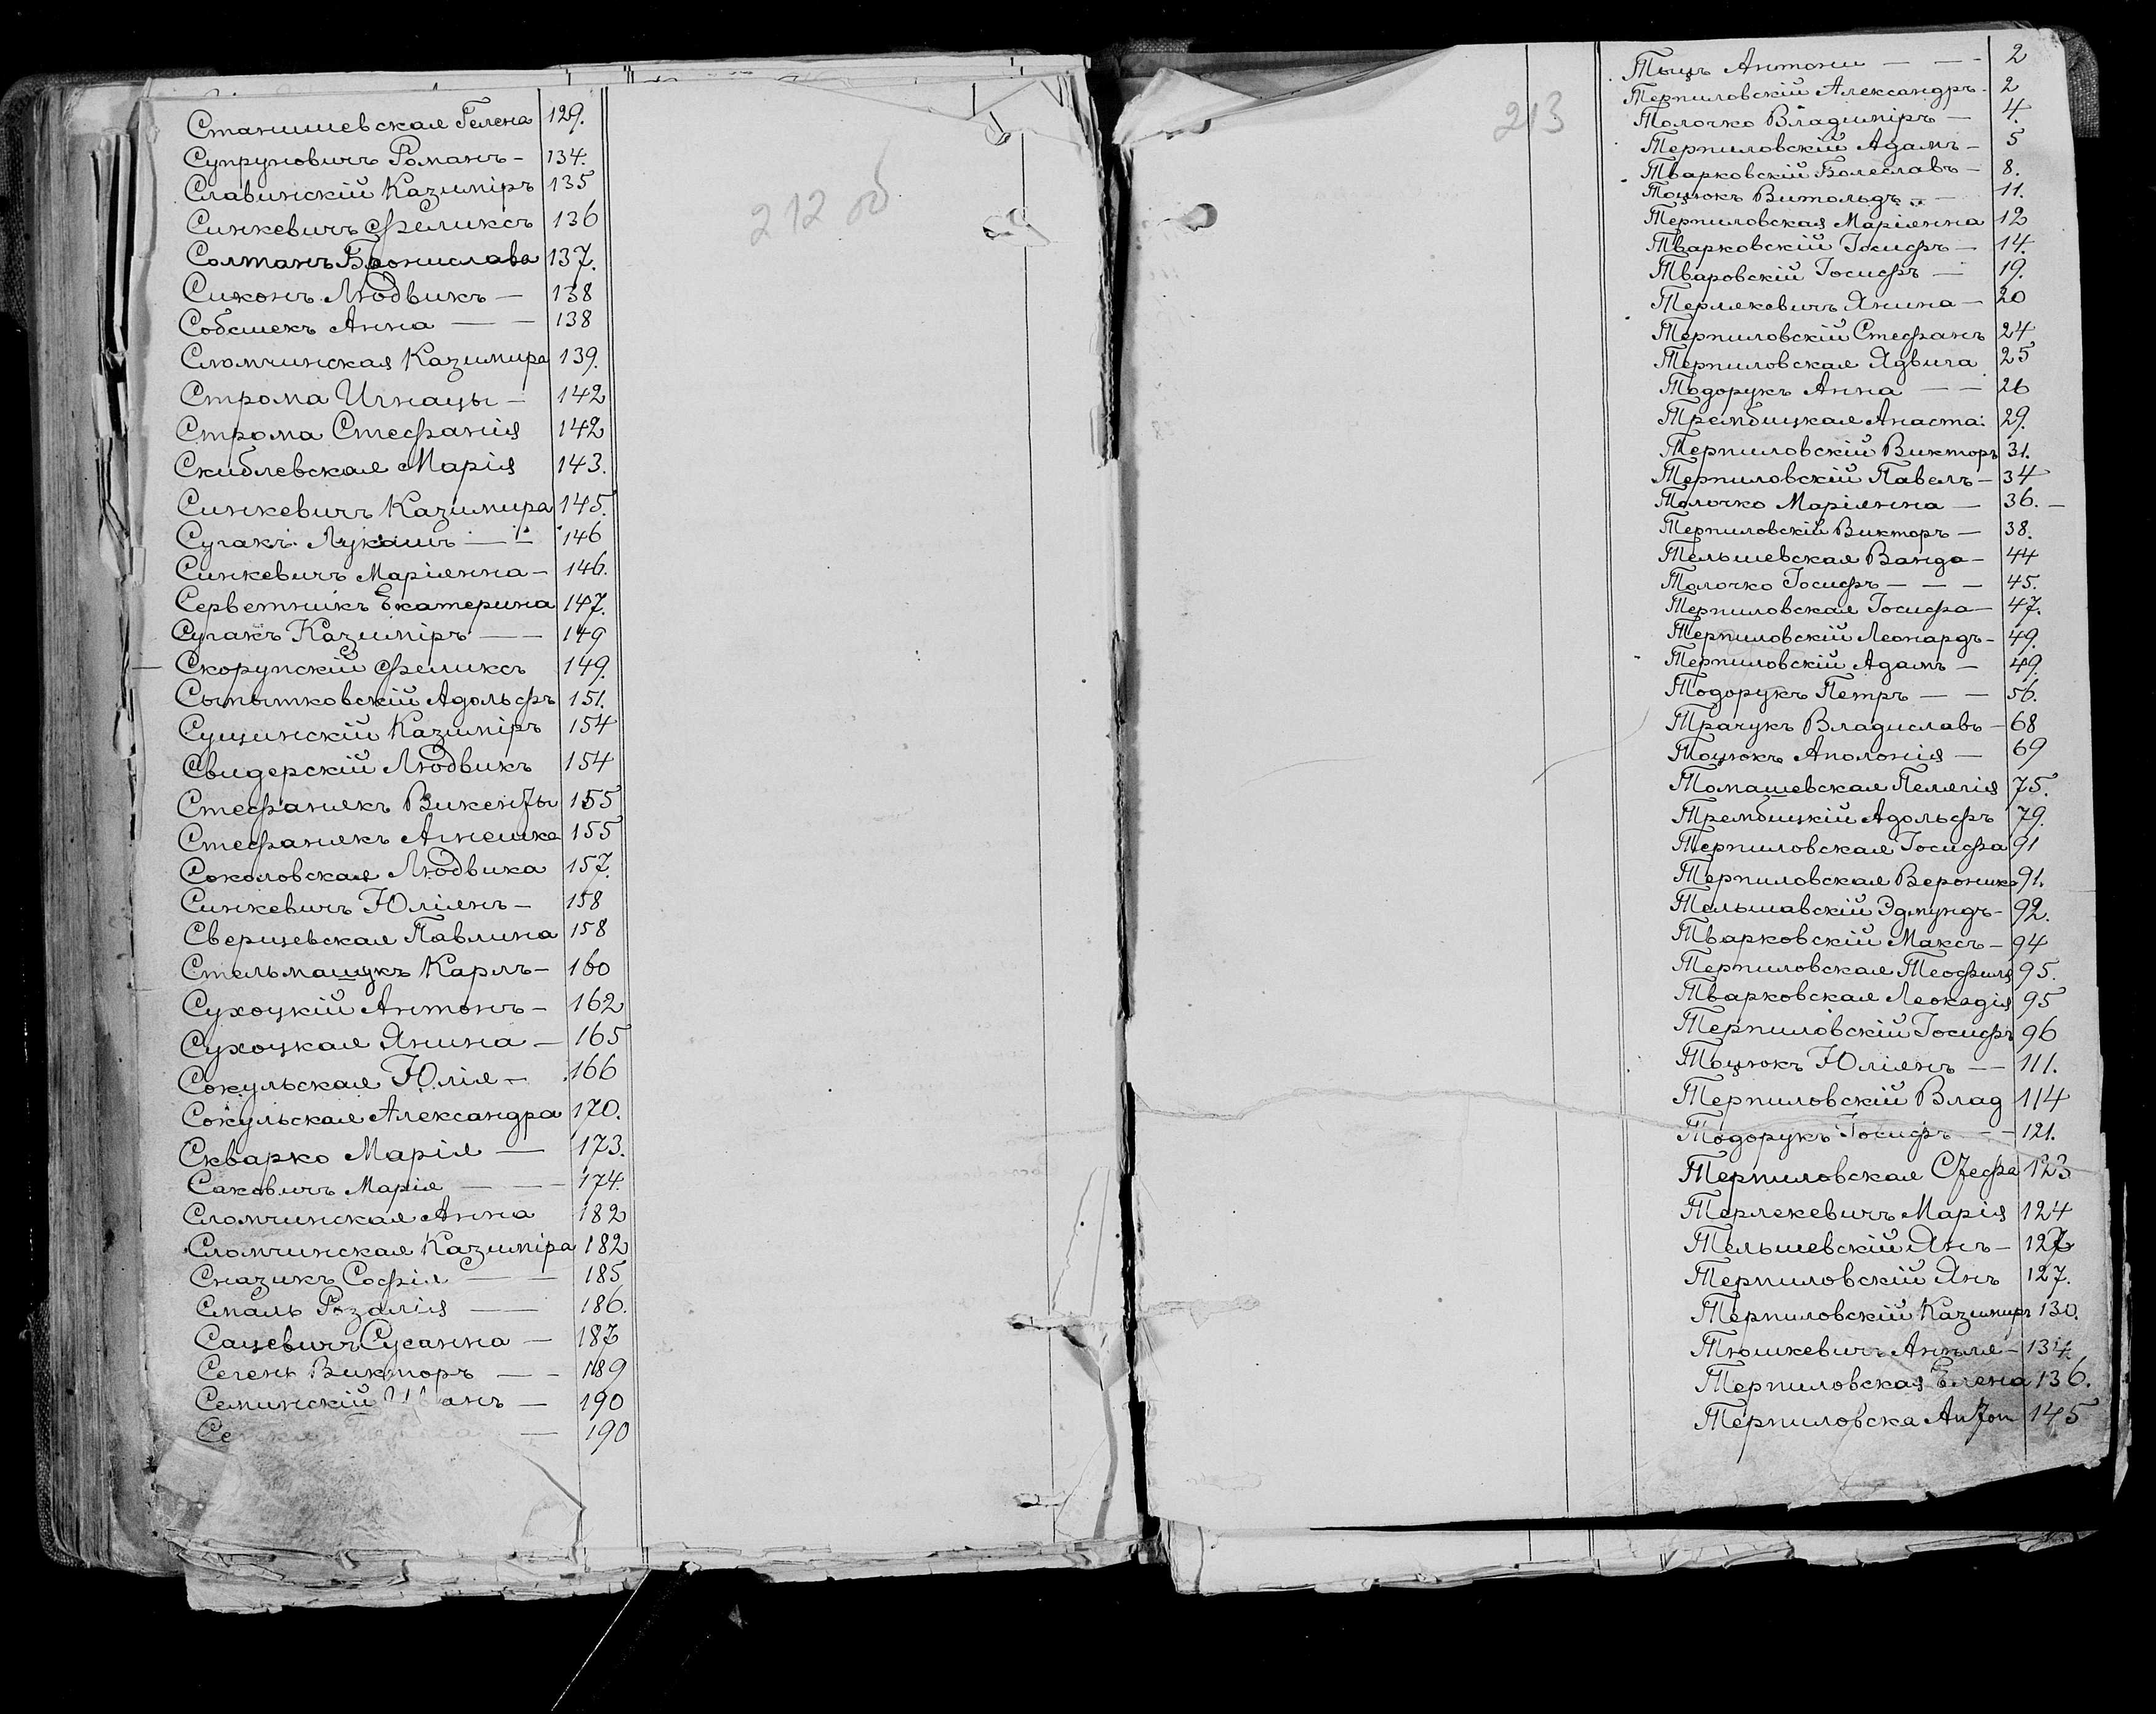 Станишевская Гелена 129.
Супруновичъ Романъ - 134.
Славинскій Казиміръ 135
Синкевичъ Феликсъ 136
Солтанъ Бронислава 137.
Сиконъ Людвикъ — 138
Собешекъ Анна — — 138
Сломчинская Казимира 139.
Строма Игнацы — 142
Строма Стефанія 142
Скиблевская Марія 143.
Синкевичъ Казимира 145.
Сугакъ Лукашъ — — 146
Синкевичъ Маріянна — 146.
Серветникъ Екатерина 147.
Сугакъ Казиміръ — — 149
Скорупскій Феликсъ 149.
Сыпытковскій Адольфъ 151.
Сущинскій Казиміръ 154
Свидерскій Людвикъ 154
Стефанякъ Викенты 155
Стефанякъ Агнешка 155
Соколовская Людвика 157.
Синкевичъ Юліянъ — 158
Сверщевская Павлина 158
Стельмашукъ Карлъ — 160
Сухоцкій Антонъ — 162
Сухоцкая Янина — 165
Сокульская Юлія — 166
Сокульская Александра 170.
Скварко Марія — 173.
Саковичъ Марія — — 174.
Сломчинская Анна 182
Сломчинская Казиміра 182
Сназикъ Софія — — 185
Смаль Розалія — — 186.
Сацевичъ Сусанна — 187
Сегень Викторъ — — 189
Семинскій Иванъ — 190
Се — 190
212 об
213
Тыцъ Антони — — - 2
Терпиловскій Александръ - 2
Толочко Владиміръ — 4.
Терпиловскій Адамъ — 5
Тварковскій Болеславъ — 8.
Тоцюкъ Витольдъ — 11.
Терпиловская Маріянна 12
Тварковскій Іосифъ — 14.
Тваровскій Іосифъ — 19.
Терлекевичъ Янина — 20
Терпиловскій Стефанъ 24
Терпиловская Ядвига 25
Тодорукъ Анна — — 26
Трембицкая Анаста: 29.
Терпиловскій Викторъ 31.
Терпиловскій Павелъ — 34
Толочко Маріянна — 36. —
Терпиловскій Викторъ — 38.
Тельшевская Ванда — 44
Толочко Іосифъ — — — 45.
Терпиловская Іосифа — 47.
Терпиловскій Леонардъ — 49.
Терпиловскій Адамъ — 49.
Тодорукъ Петръ — — 56.
Трачукъ Владиславъ — 68
Тоцюкъ Аполонія — 69
Томашевская Пелягія 75.
Трембицкій Адольфъ 79.
Терпиловская Іосифа 91
Терпиловская Вероника 91.
Тельшавскій Эдмундъ — 92.
Тварковскій Максъ — 94
Терпиловская Теофиля 95.
Тварковская Леокадія 95
Терпиловскій Іосифъ 96
Тоцюкъ Юліянъ — — 111.
Терпиловскій Влад 114
Тодорукъ Іосифъ — — 121.
Терпиловская Стефа 123
Терлекевичъ Марія 124
Тельшевскій Янъ — 127
Терпиловскій Янъ 127.
Терпиловскій Казимиръ 130.
Тюшкевичъ Анъля — 134.
Терпиловская Елена 136.
Терпиловска Антон 145